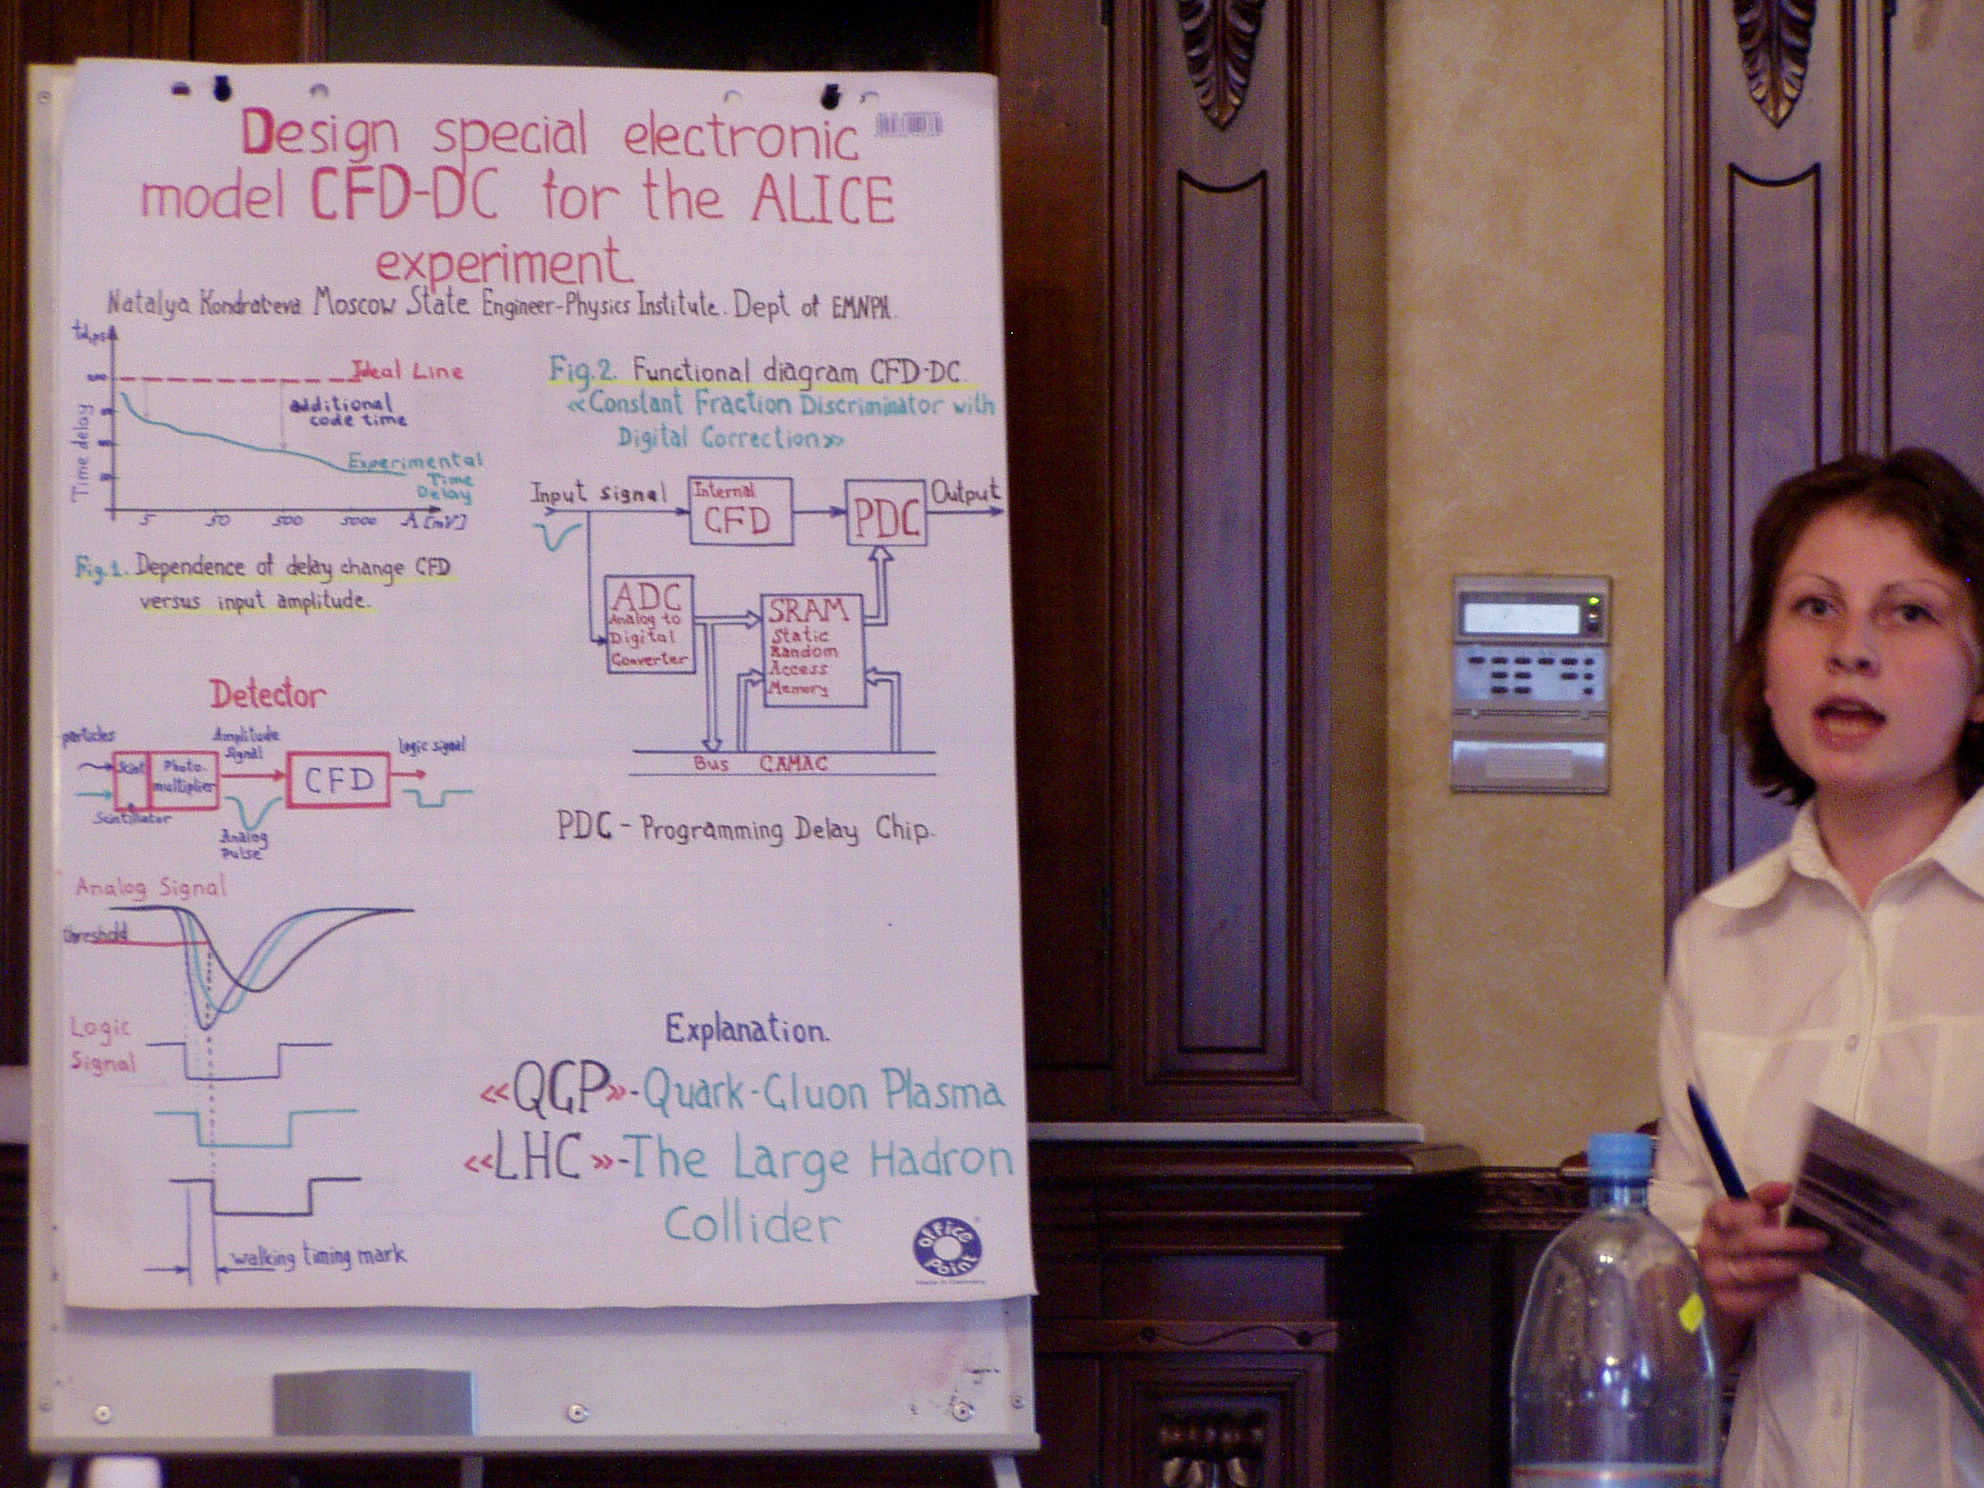 Design special electronic
model CFD-DC for the ALICE
experiment.
Natalya Kondrateva Moscow State Engineer-Physics Institute. Dept of EMNPH.
td,ps
Time delay
Ideal Line
additional
code time
Experimental
Time
Delay
5 50 500 5000 A [mV]
Fig.1. Dependence of delay change CFD
versus input amplitude.
Fig.2. Functional diagram CFD-DC.
«Constant Fraction Discriminator with
Digital Correction»
Input signal
Internal
CFD
PDC
Output
ADC
Analog to
Digital
Converter
SRAM
Static
Random
Access
Memory
Bus CAMAC
PDC - Programming Delay Chip.
Detector
particles
Scint
Photo-
multiplier
Scintillator
Amplitude
Signal
Analog
pulse
CFD
logic signal
Analog Signal
threshold
Logic
Signal
walking timing mark
Explanation.
«QGP»-Quark-Gluon Plasma
«LHC»-The Large Hadron
Collider
office
Point
Made in Germany